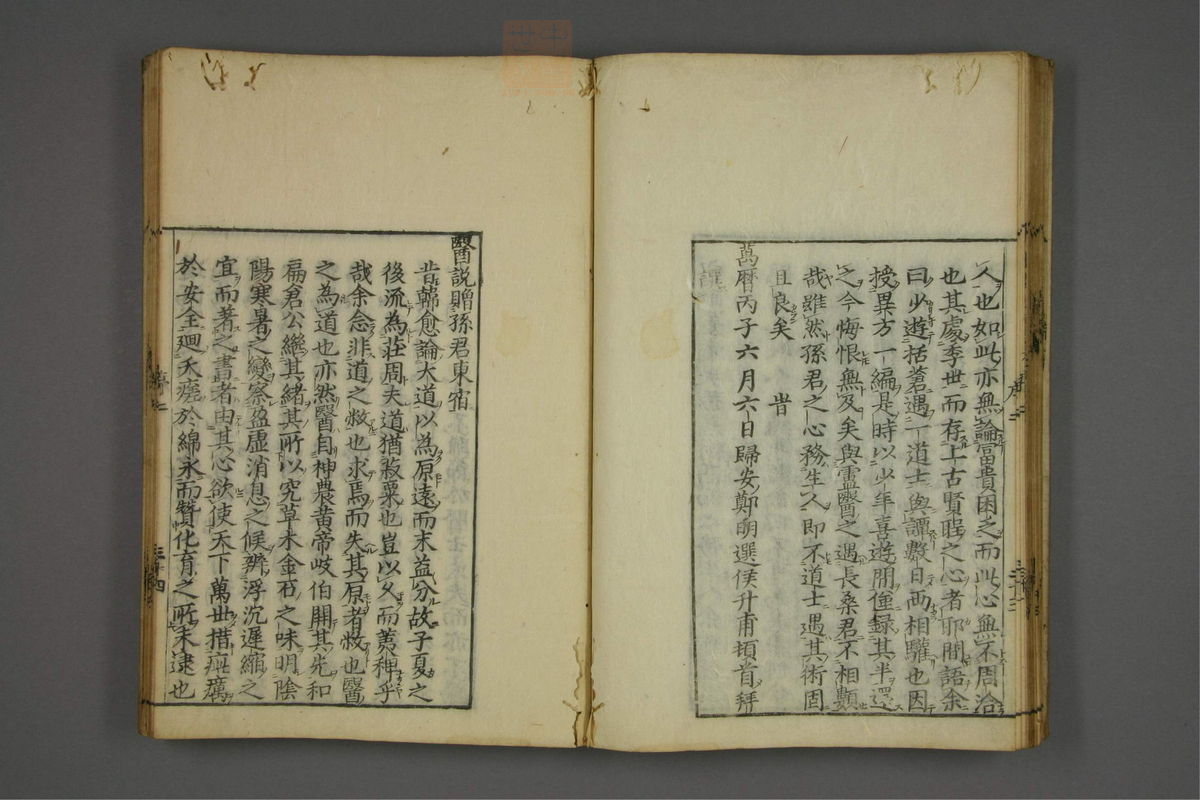 人也如此亦無論富貴困乏而此心無不周洽
也其處季世而存上古賢聖之心者耶間語余
曰少遊括蒼遇一道士與譚數日而相驩也因
授異方一編是時以少年喜遊閒僅録其半還
之今悔恨無及矣與盧醫之遇長桑君不相類
哉雖然孫君之心務生人即不道士遇其術固
且良矣 旹
萬曆丙子六月六日歸安鄭明選侯升甫頓首拜
醫説贈孫君東宿
昔韓愈論大道以為原遠而末益分故子夏之
後流為莊周夫道猶菽粟也豈以久而荑稗乎
哉余念非道之敝也求焉而失其原者敝也醫
之為道也亦然醫自神農黄帝岐伯開其先和
扁倉公繼其緒其所以究草木金石之味明陰
陽寒暑之變察盈虛消息之候辨浮沉遲縮之
宜而著之書者由其心欲使天下萬世措疵癘
於安全廻夭瘥於綿永而贊化育之所未逮也